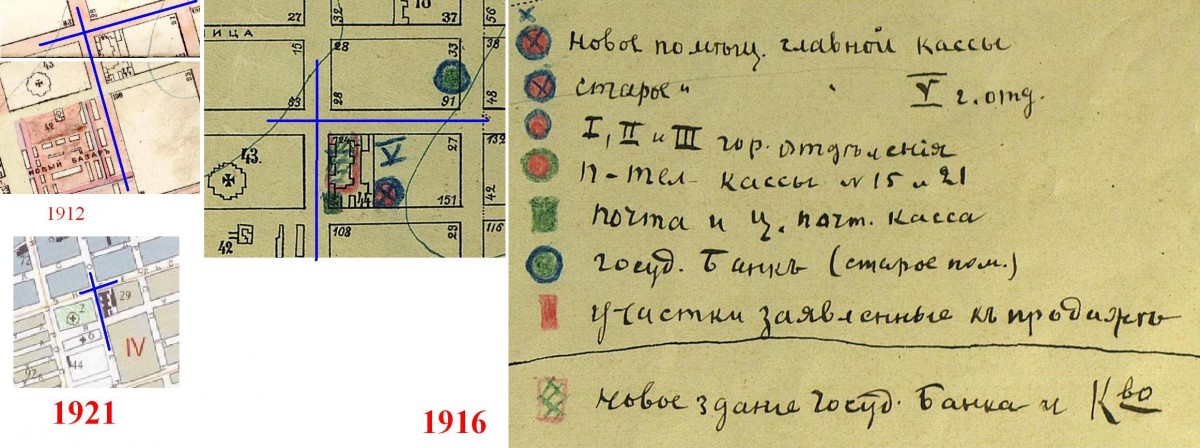 1912
НОВЫЙ БАЗАРЪ
42
43
108
1921
2
29
6
IV
44
92
1916
27
32
37
56
ИЦА
15
28
33
38
83
28
91
48
124
27
132
43
КѴ
44
151
42
42
108
23
116
Новое помѣщ. главной кассы
старое " " V г. отд.
I, II и III гор. отдѣленія
п-тел. кассы № 15 и 21
почта и ц. почт. касса
госуд. Банкъ (старое пом.)
участки заявленные къ продажѣ
новое зданіе госуд. Банка и Кво